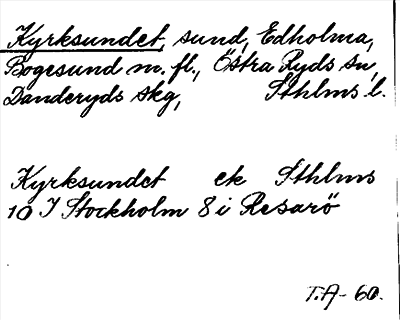 Kyrksundet, sund, Edholma,
Bogesund m. fl., Östra Ryds sn,
Danderyds skg, Sthlms l.
Kyrksundet ek Sthlms
10 I Stockholm 8 i Resarö
T.A- 60.